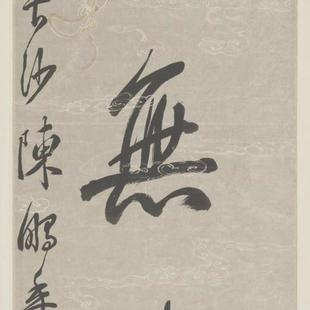 無
長沙陳鵬年